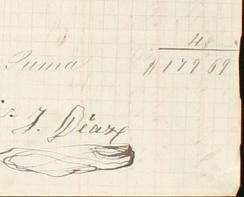 4
Suma $179 69
J. Diaz